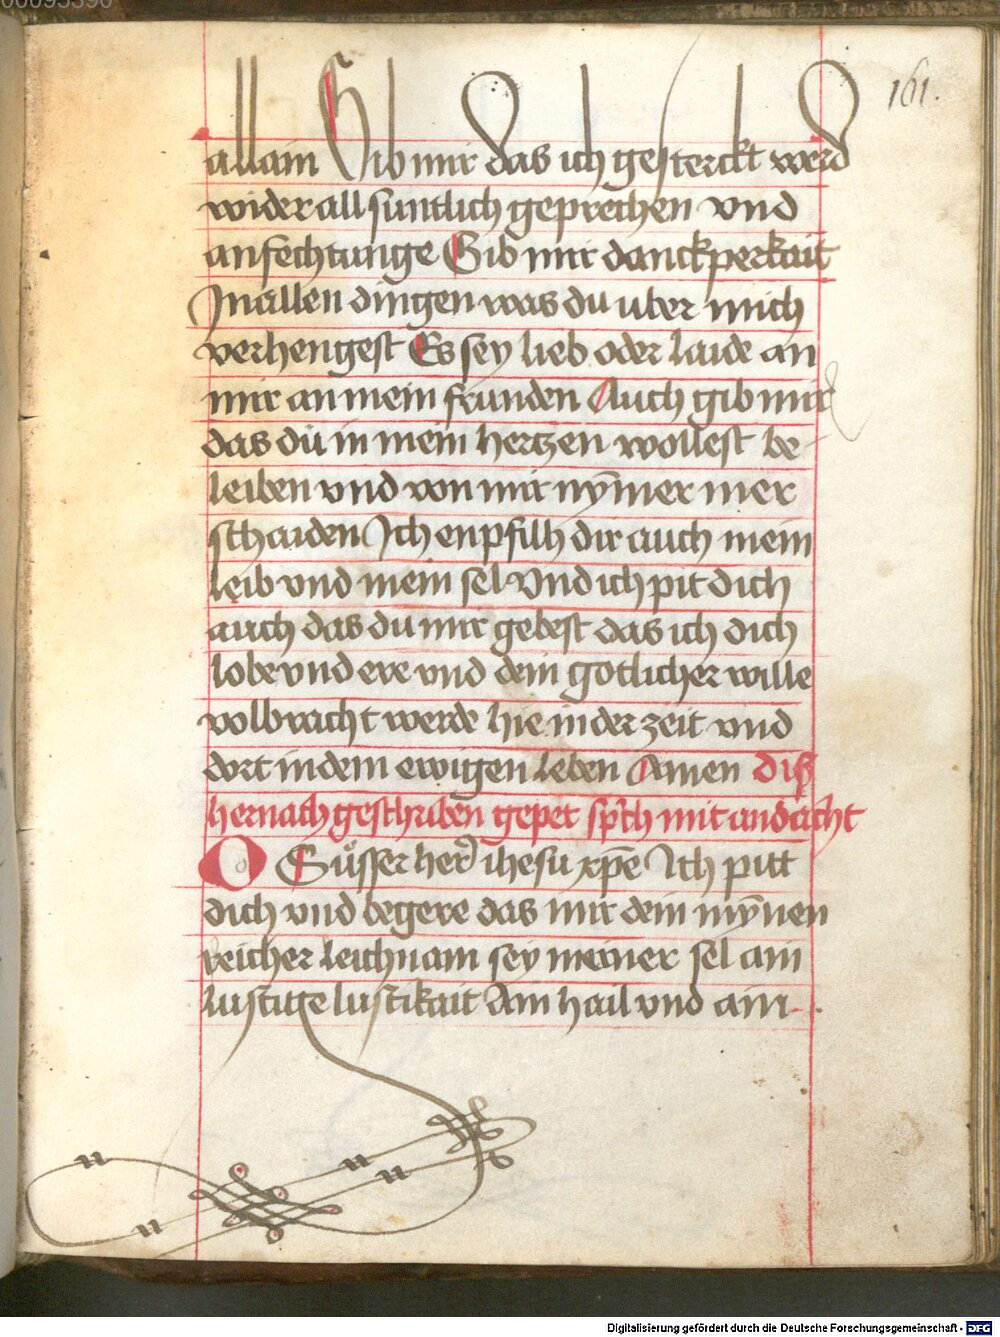 00095390
161.
allain Gib mir das ich gesterckt werd
wider all suntlich geprechen vnd
anfechtunge Gib mir danckperkait
In allen dingen was du vber mich
verhengest Es sey lieb oder laide an
mir an mein frunden Auch gib mir
das dú in mein hertzen wollest be-
leiben vnd von mir nÿmer mer
schaiden Ich enpfilh dir auch mein
leib vnd mein sel Vnd ich pit dich
auch das du mir gebest das ich dich
lobe vnd ere vnd dein gotlicher wille
volbracht werde hie in der zeit vnd
dort in dem ewigen leben Amen diß
hernach geschriben gepet sp̄ch mit andacht
O Süsser her ihesu xp̄e Ich pitt
dich vnd begere das mir dein mÿnen
reicher leichnam sey meiner sel ain
lustige lustikait Ain hail vnd ain
Digitalisierung gefördert durch die Deutsche Forschungsgemeinschaft - DFG